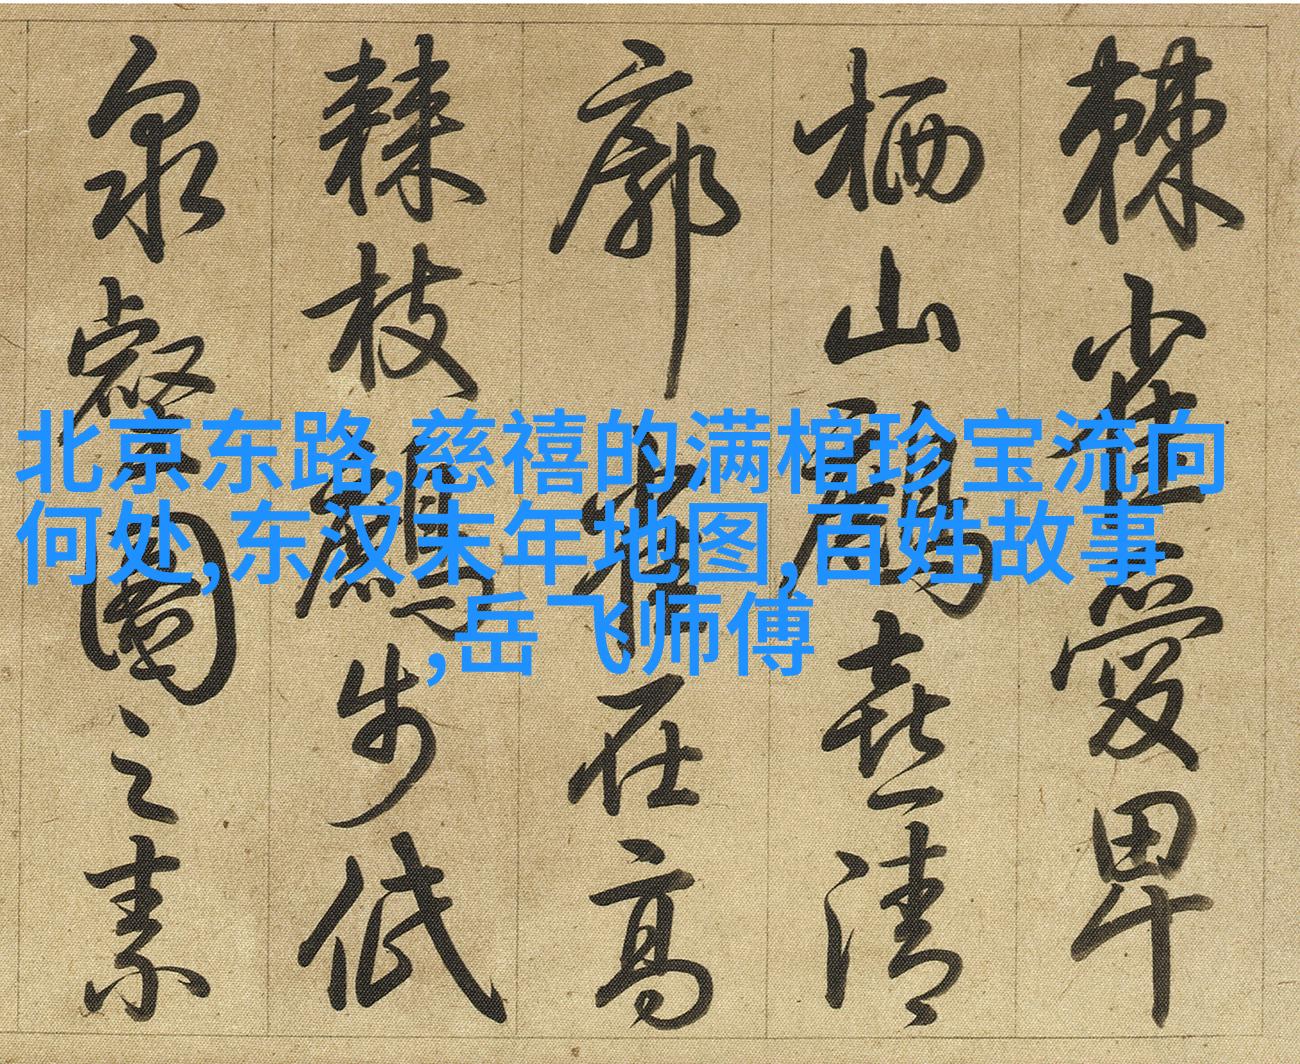 北京东路,慈禧的满棺珍宝流向
何处,东汉末年地图,百姓故事
,岳飞师傅
棘雀愛卑
栖山鷓喜清
廓雀在高
棘枝鷓步低
泉壑圖之素